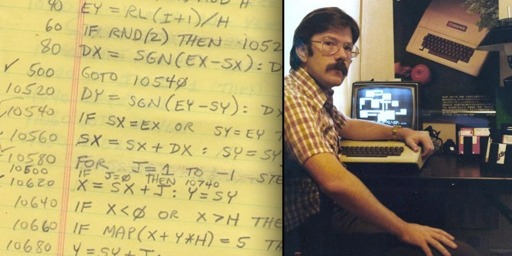 40 EY = RL(I+1)/H
60 IF RND(2) THEN 1052
80 DX = SGN(EX-SX): D
✓ 500 GOTO 1054Ø
10520 DY = SGN(EY-SY): D
10540 IF SX=EX OR SY=EY T
✓ 10560 SX = SX + DX : SY = SY
10580 FOR J=1 TO -1 STE
10600 IF J=Ø THEN 10740
10620 X = SX+J : Y=SY
10640 IF X<Ø OR X>H THE
10660 IF MAP(X+Y*H) = 5 TH
10680 Y = SY + J :